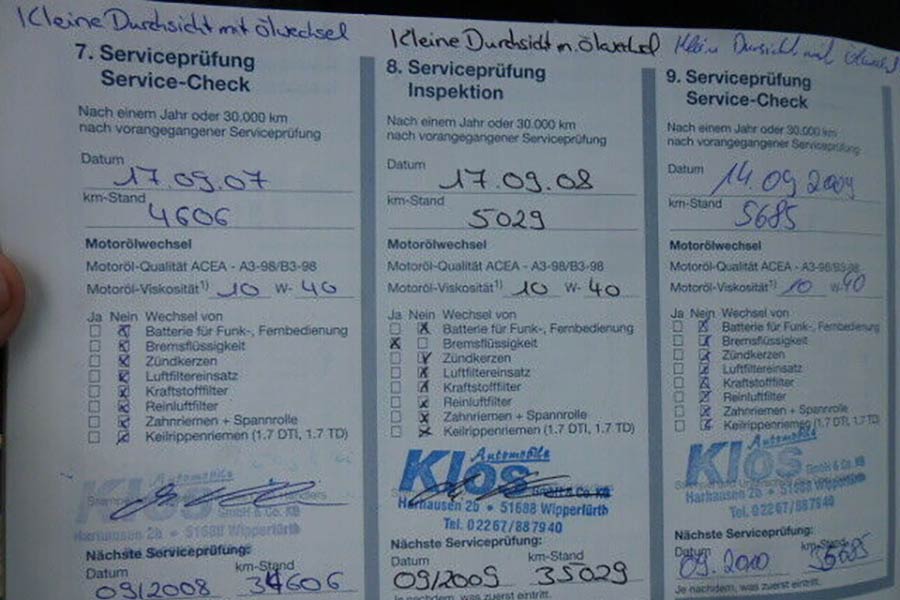 Kleine Durchsicht mit Ölwechsel
7. Serviceprüfung
Service-Check
Nach einem Jahr oder 30.000 km
nach vorangegangener Serviceprüfung
Datum
17.09.07
km-Stand
4606
Motorölwechsel
Motoröl-Qualität ACEA - A3-98/B3-98
Motoröl-Viskosität1) 10 W- 40
Ja Nein Wechsel von
Batterie für Funk-, Fernbedienung
Bremsflüssigkeit
Zündkerzen
Luftfiltereinsatz
Kraftstofffilter
Reinluftfilter
Zahnriemen + Spannrolle
Keilrippenriemen (1.7 DTI, 1.7 TD)
Automobile
Klos
GmbH & Co. KG
Harhausen 2b • 51688 Wipperfürth
Nächste Serviceprüfung:
Datum km-Stand
09/2008 34606
Kleine Durchsicht m. Ölwechsel
8. Serviceprüfung
Inspektion
Nach einem Jahr oder 30.000 km
nach vorangegangener Serviceprüfung
Datum
17.09.08
km-Stand
5029
Motorölwechsel
Motoröl-Qualität ACEA - A3-98/B3-98
Motoröl-Viskosität1) 10 W- 40
Ja Nein Wechsel von
Batterie für Funk-, Fernbedienung
Bremsflüssigkeit
Zündkerzen
Luftfiltereinsatz
Kraftstofffilter
Reinluftfilter
Zahnriemen + Spannrolle
Keilrippenriemen (1.7 DTI, 1.7 TD)
Automobile
Klos
GmbH & Co. KG
Harhausen 2b • 51688 Wipperfürth
Tel. 02267/887940
Nächste Serviceprüfung:
Datum km-Stand
09/2009 35029
Je nachdem, was zuerst eintritt.
Klein Dursicht mit Ölwechsel
9. Serviceprüfung
Service-Check
Nach einem Jahr oder 30.000 km
nach vorangegangener Serviceprüfung
Datum
14.09.2009
km-Stand
5685
Motorölwechsel
Motoröl-Qualität ACEA - A3-98/B3-98
Motoröl-Viskosität1) 10 W- 40
Ja Nein Wechsel von
Batterie für Funk-, Fernbedienung
Bremsflüssigkeit
Zündkerzen
Luftfiltereinsatz
Kraftstofffilter
Reinluftfilter
Zahnriemen + Spannrolle
Keilrippenriemen (1.7 DTI, 1.7 TD)
Automobile
Klos
GmbH & Co. KG
Harhausen 2b • 51688 Wipperfürth
Tel. 02267/887940
Nächste Serviceprüfung:
Datum km-Stand
09.2010 35685
Je nachdem, was zuerst eintritt.